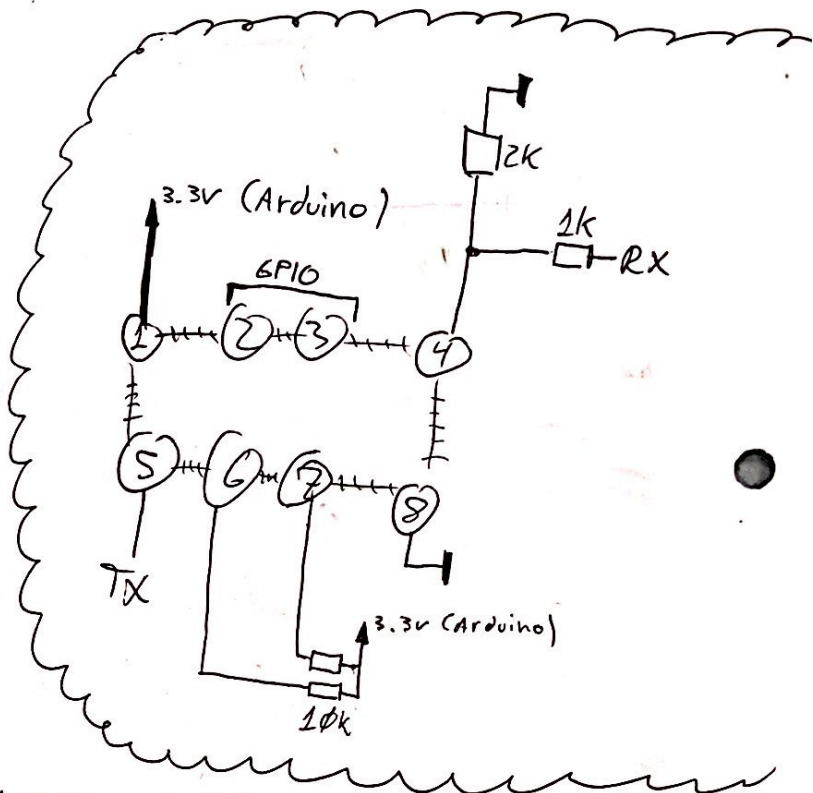 2K
3.3V (Arduino)
1K
RX
GPIO
1
2
3
4
5
6
7
8
TX
3.3V (Arduino)
10K